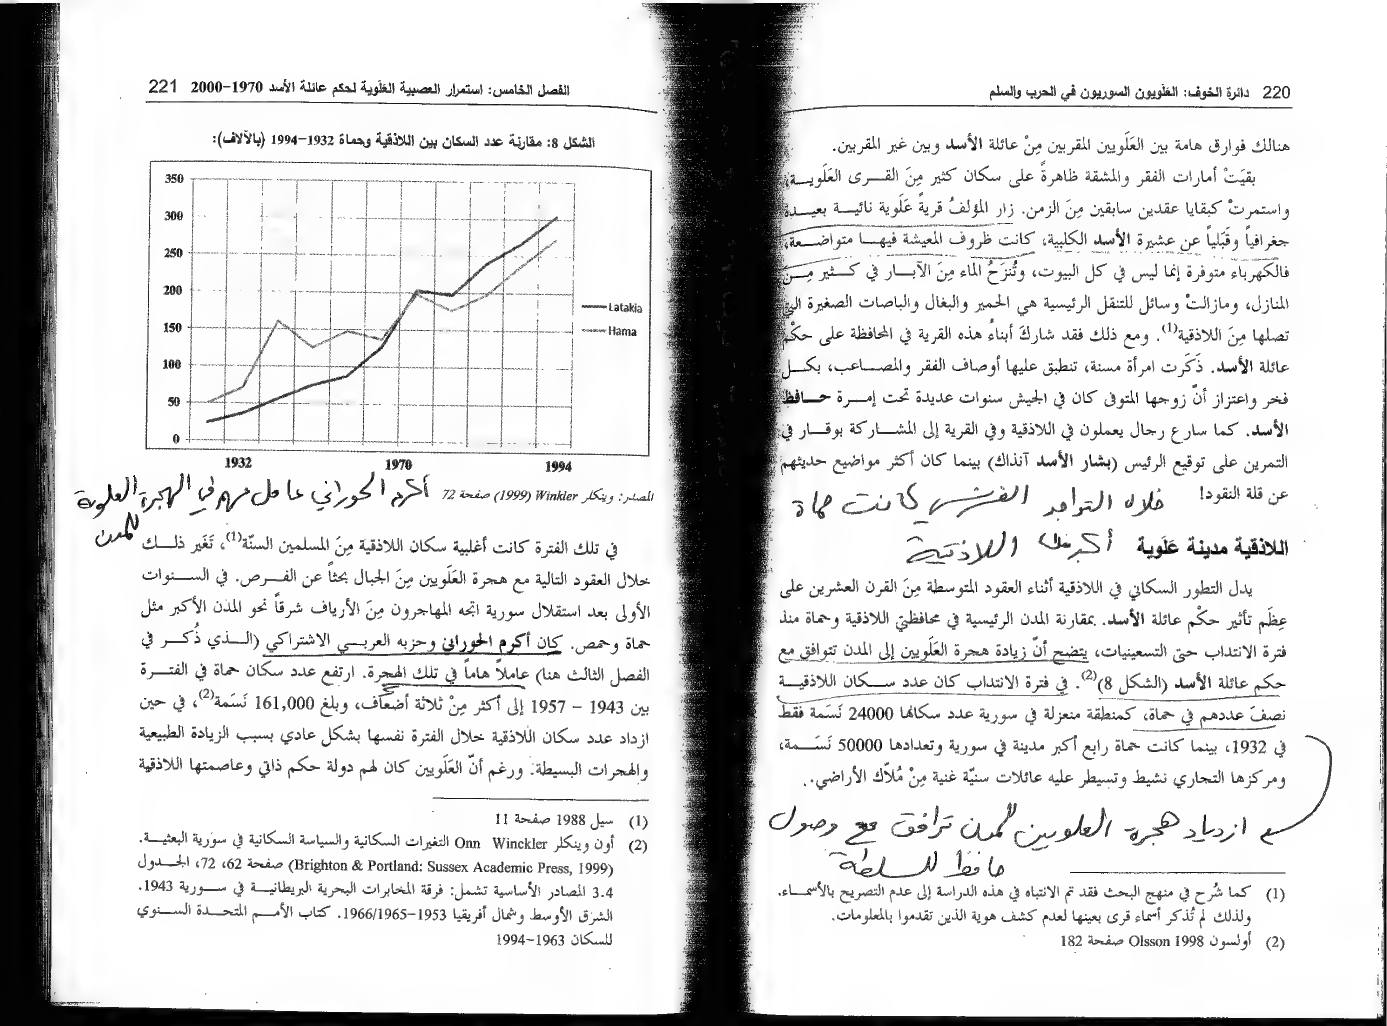 220 دائرة الخوف: العَلَويون السوريون في الحرب والسلم
هنالك فوارق هامة بين العَلَويين المقربين مِنْ عائلة الأسد وبين غير المقربين.
بقيَتْ أمارات الفقر والمشقة ظاهرةً على سكان كثير مِنَ القـرى العَلَويـة،
واستمرتْ كبقايا عقدين سابقين مِنَ الزمن. زار المؤلفُ قريةً عَلَوية نائيـة بعيـدة
جغرافياً وقَبَلياً عن عشيرة الأسد الكلبية، كانت ظروف المعيشة فيهـا متواضـعة،
فالكهرباء متوفرة إنما ليس في كل البيوت، وتُنزَحُ الماء مِنَ الآبـار في كـثير مِـنَ
المنازل، ومازالتْ وسائل للتنقل الرئيسية هي الحمير والبغال والباصات الصغيرة التي
تصلها مِنَ اللاذقية(1). ومع ذلك فقد شارك أبناءُ هذه القرية في المحافظة على حكْم
عائلة الأسد. ذَكَرت امرأة مسنة، تنطبق عليها أوصاف الفقر والمصـاعب، بكـل
فخر واعتزاز أنّ زوجها المتوفى كان في الجيش سنوات عديدة تحت إمـرة حـافظ
الأسد. كما سارع رجال يعملون في اللاذقية وفي القرية إلى المشـاركة بوقـار في
التمرين على توقيع الرئيس (بشار الأسد آنذاك) بينما كان أكثر مواضيع حديثهم
عن قلة النقود!
خلال التواجد الفرنسي كانت حماة
أكبر من اللاذقية
اللاذقية مدينة عَلَوية
يدل التطور السكاني في اللاذقية أثناء العقود المتوسطة مِنَ القرن العشرين على
عِظَم تأثير حكْم عائلة الأسد. بمقارنة المدن الرئيسية في محافظتي اللاذقية وحماة منذ
فترة الانتداب حتى التسعينيات، يتضح أنّ زيادة هجرة العَلَويين إلى المدن تتوافق مع
حكم عائلة الأسد (الشكل 8)(2). في فترة الانتداب كان عدد سـكان اللاذقيـة
نصفَ عددهم في حماة، كمنطقة منعزلة في سورية عدد سكانها 24000 نَسَمة فقط
في 1932، بينما كانت حماة رابع أكبر مدينة في سورية وتعدادها 50000 نَسَـمة،
ومركزها التجاري نشيط وتسيطر عليه عائلات سنيّة غنية مِنْ مُلاّك الأراضي.
ازدياد هجرة العلويين للمدن ترافق مع وصول
حافظ للسلطة
(1) كما شُرح في منهج البحث فقد تم الانتباه في هذه الدراسة إلى عدم التصريح بالأسمـاء.
ولذلك لم تُذكر أسماء قرى بعينها لعدم كشف هوية الذين تقدموا بالمعلومات.
(2) أولسون Olsson 1998 صفحة 182
الفصل الخامس: استمرار العصبية العَلَوية لحكم عائلة الأسد 1970-2000 221
الشكل 8: مقارنة عدد السكان بين اللاذقية وحماة 1932-1994 (بالآلاف):
350
300
250
200
150
100
50
0
Latakia
Hama
1932 1970 1994
المصدر: وينكلر Winkler (1999) صفحة 72
أكرم الحوراني عامل مهم في الهجرة العلوية
للمدن
في تلك الفترة كانت أغلبية سكان اللاذقية مِنَ المسلمين السنّة(1)، تَغَير ذلـك
خلال العقود التالية مع هجرة العَلَويين مِنَ الجبال بحثاً عن الفـرص. في السـنوات
الأولى بعد استقلال سورية اتجه المهاجرون مِنَ الأرياف شرقاً نحو المدن الأكبر مثل
حماة وحمص. كان أكرم الحوراني وحزبه العربـي الاشتراكي (الـذي ذُكـر في
الفصل الثالث هنا) عاملاً هاماً في تلك الهجرة. ارتفع عدد سكان حماة في الفتـرة
بين 1943 – 1957 إلى أكثر مِنْ ثلاثة أضعاف، وبلغ 161,000 نَسَمة(2)، في حين
ازداد عدد سكان اللاذقية خلال الفترة نفسها بشكل عادي بسبب الزيادة الطبيعية
والهجرات البسيطة. ورغم أنّ العَلَويين كان لهم دولة حكم ذاتي وعاصمتها اللاذقية
(1) سيل 1988 صفحة 11
(2) أون وينكلر Onn Winckler التغيرات السكانية والسياسة السكانية في سورية البعثيـة.
(Brighton & Portland: Sussex Academic Press, 1999) صفحة 62، 72، الجـدول
3.4 المصادر الأساسية تشمل: فرقة المخابرات البحرية البريطانيـة في سـورية 1943.
الشرق الأوسط وشمال أفريقيا 1953-1966/1965. كتاب الأمـم المتحـدة السـنوي
للسكان 1963-1994